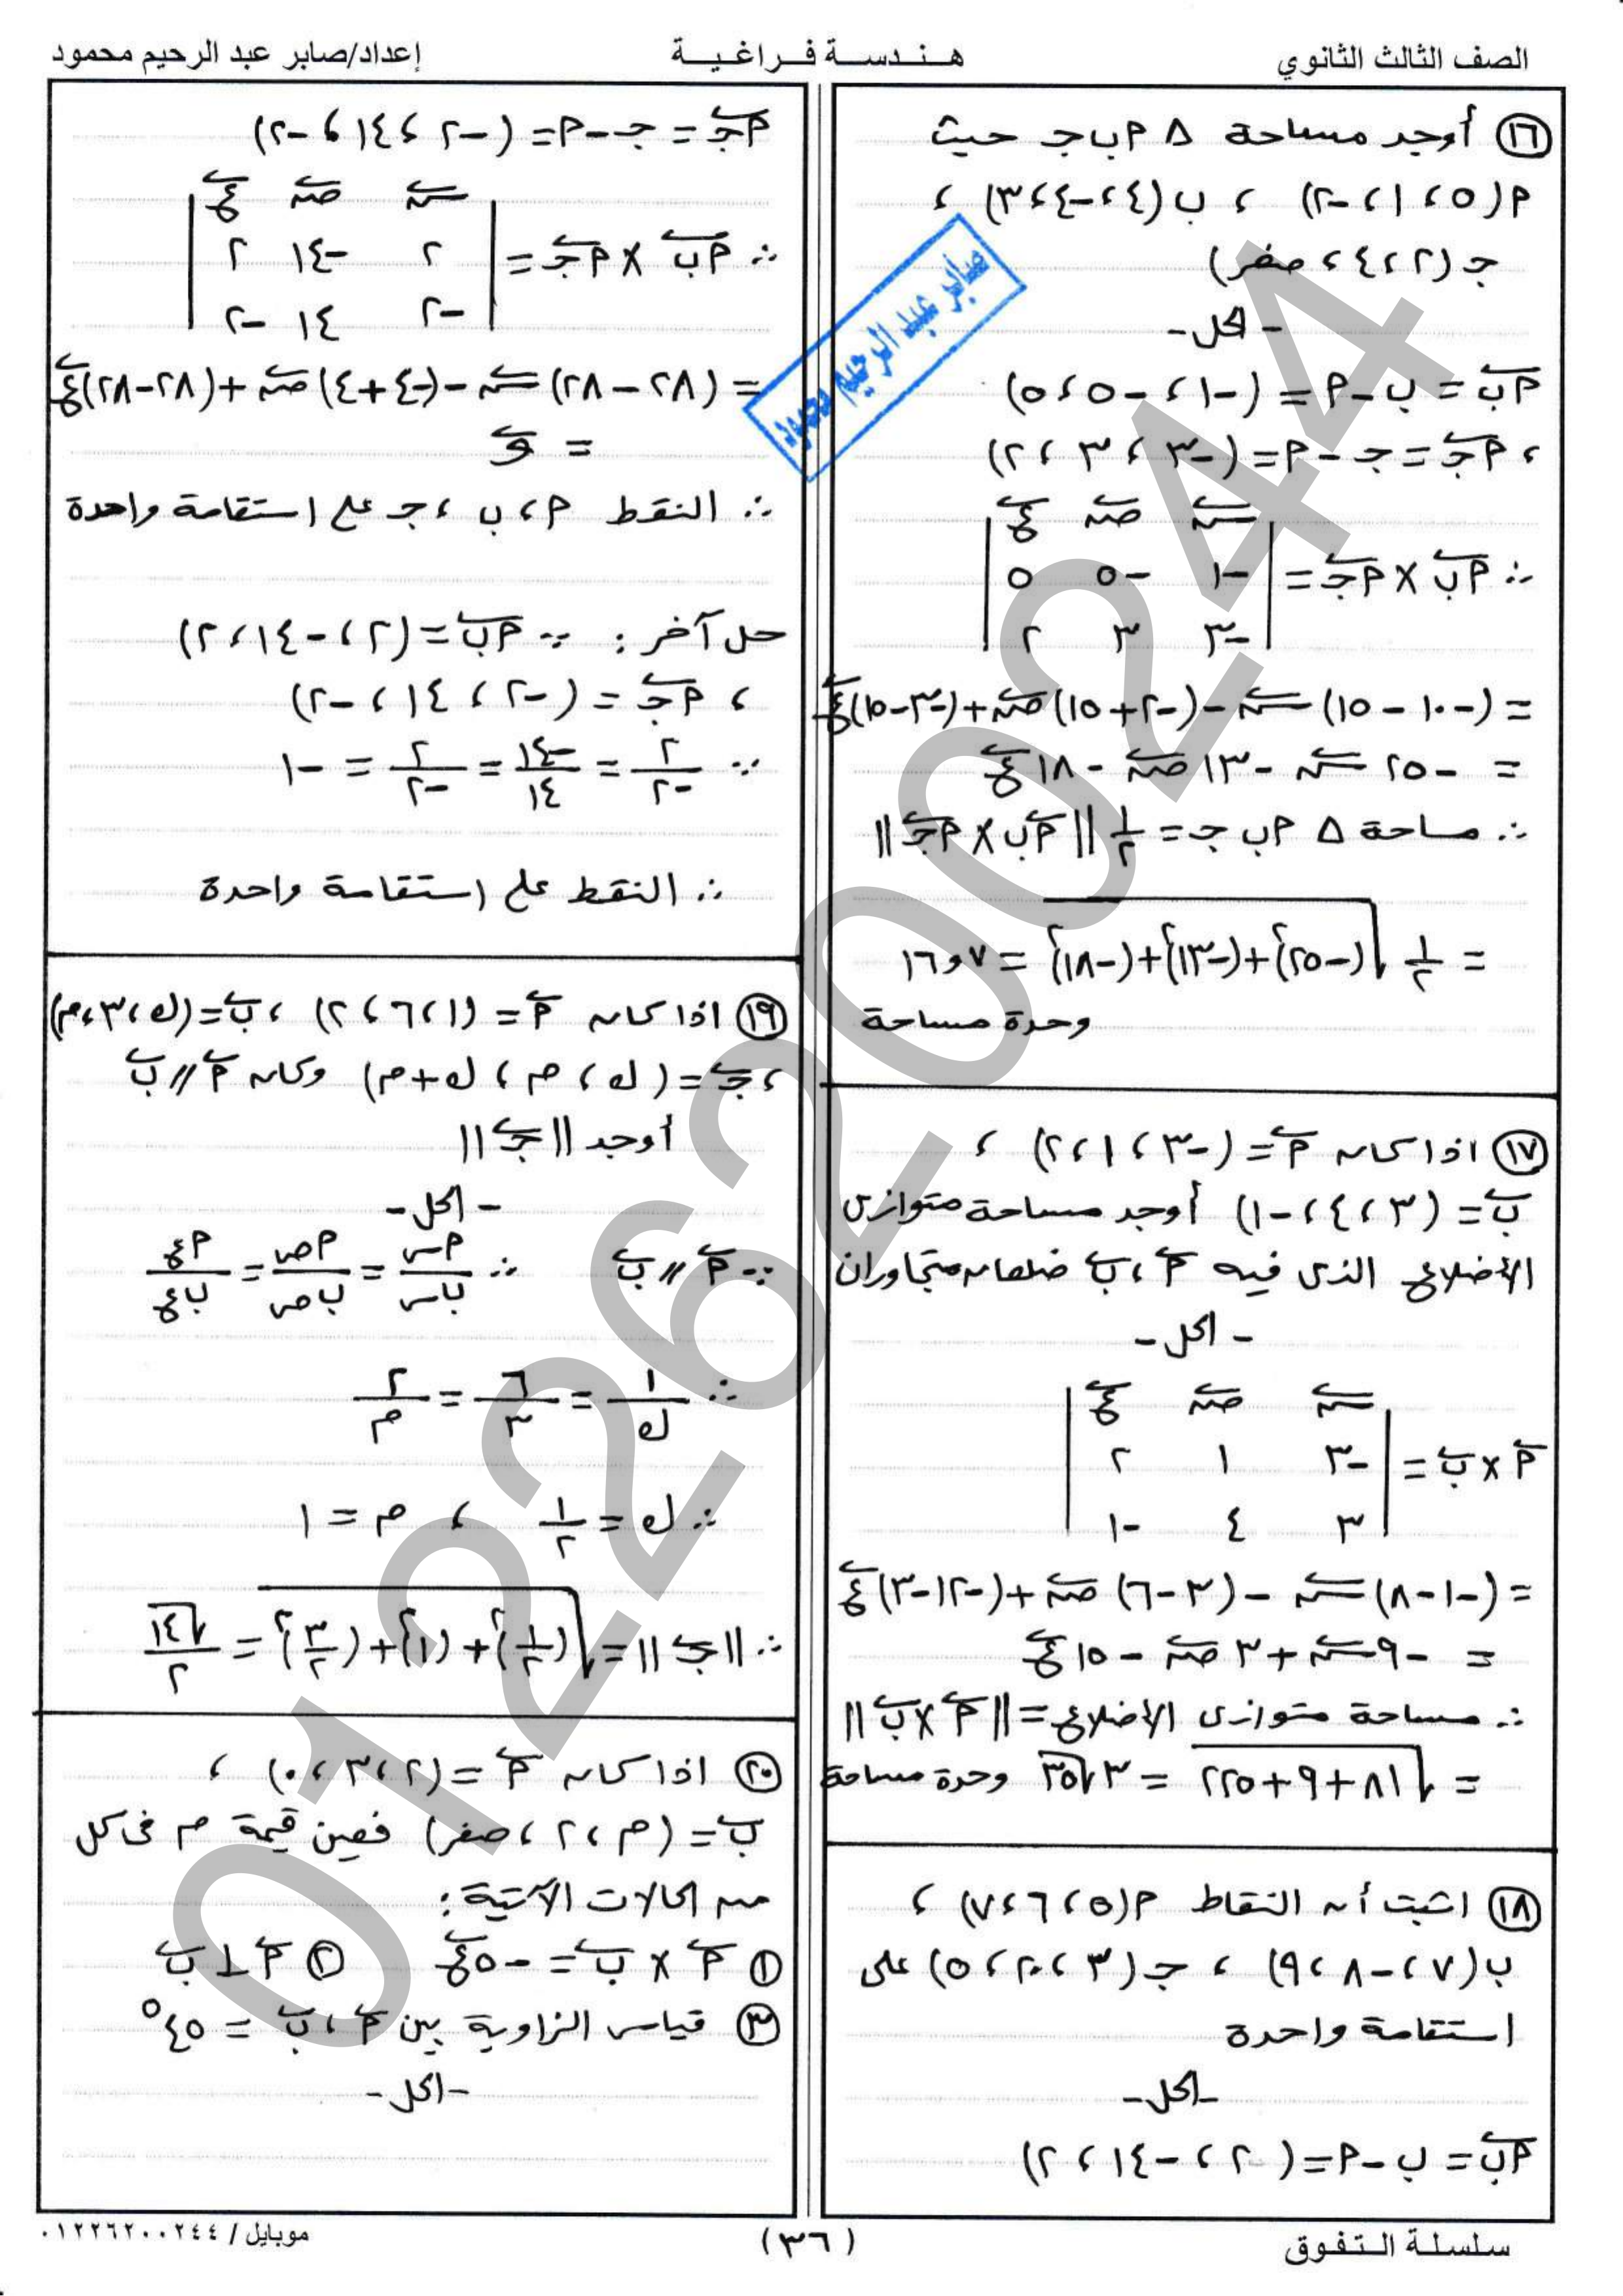 الصف الثالث الثانوي
هـنـدسـة فـراغـيـة
إعداد/صابر عبد الرحيم محمود
(١٦) أوجد مساحة Δ ٢ ب جـ حيث
٢(٥ ، ١ ، -٢) ، ب(٤ ، -٤ ، ٣) ،
جـ (٢ ، ٤ ، صفر)
- الحل -
٢ب = ب - ٢ = (-١ ، -٥ ، ٥)
، ٢جـ = جـ - ٢ = (-٣ ، ٣ ، ٢)
س ص ع
∴ ٢ب × ٢جـ = | -١ -٥ ٥ |
| -٣ ٣ ٢ |
= (-١٠ - ١٥) س - (-٢ + ١٥) ص + (-٣ - ١٥) ع
= -٢٥ س - ١٣ ص - ١٨ ع
∴ مساحة Δ ٢ ب جـ = ١/٢ || ٢ب × ٢جـ ||
= ١/٢ √((-٢٥)² + (-١٣)² + (-١٨)²) = ١٦,٧
وحدة مساحة
(١٧) اذا كان ٢ = (-٣ ، ١ ، ٢) ،
ب = (٣ ، ٤ ، -١) أوجد مساحة متوازى
الأضلاع الذى فيه ٢ ، ب ضلعان متجاوران
- الحل -
س ص ع
٢ × ب = | -٣ ١ ٢ |
| ٣ ٤ -١ |
= (-١ - ٨) س - (٣ - ٦) ص + (-١٢ - ٣) ع
= -٩ س + ٣ ص - ١٥ ع
∴ مساحة متوازى الأضلاع = || ٢ × ب ||
= √(٨١ + ٩ + ٢٢٥) = ٣√٣٥ وحدة مساحة
(١٨) اثبت أن النقاط ٢(٥ ، ٦ ، ٧) ،
ب(٧ ، -٨ ، ٩) ، جـ(٣ ، ٢٠ ، ٥) على
استقامة واحدة
- الحل -
٢ب = ب - ٢ = (٢ ، -١٤ ، ٢)
٢جـ = جـ - ٢ = (-٢ ، ١٤ ، -٢)
س ص ع
∴ ٢ب × ٢جـ = | ٢ -١٤ ٢ |
| -٢ ١٤ -٢ |
= (٢٨ - ٢٨) س - (-٤ + ٤) ص + (٢٨ - ٢٨) ع
= و
∴ النقط ٢ ، ب ، جـ على استقامة واحدة
حل آخر : ∵ ٢ب = (٢ ، -١٤ ، ٢)
، ٢جـ = (-٢ ، ١٤ ، -٢)
∵ ٢/-٢ = -١٤/١٤ = ٢/-٢ = -١
∴ النقط على استقامة واحدة
(١٩) اذا كان ٢ = (١ ، ٦ ، ٢) ، ب = (ك ، ٣ ، م)
، جـ = (ك ، م ، ك + م) وكان ٢ // ب
أوجد || جـ ||
- الحل -
∵ ٢ // ب ∴ ٢س/ب س = ٢ص/ب ص = ٢ع/ب ع
∴ ١/ك = ٦/٣ = ٢/م
∴ ك = ١/٢ ، م = ١
∴ || جـ || = √((١/٢)² + (١)² + (٣/٢)²) = √١٤/٢
(٢٠) اذا كان ٢ = (٢ ، ٣ ، ٠) ،
ب = (م ، ٢ ، صفر) فعين قيمة م فى كل
من الحالات الآتية :
(١) ٢ × ب = -٥ ع (٢) ٢ ⊥ ب
(٣) قياس الزاوية بين ٢ ، ب = ٤٥°
- الحل -
صابر عبد الرحيم محمود
01226200244
سلسلة الـتفوق
(٣٦)
موبايل / ٠١٢٢٦٢٠٠٢٤٤